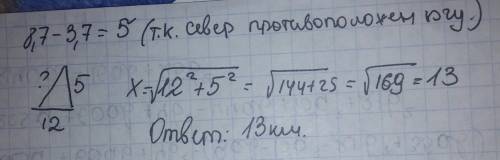 8,7-3,7=5 (т.к. север противоположен югу.)
? 5 x=√12²+5² = √144+25 = √169 = 13
12
Ответ: 13км.